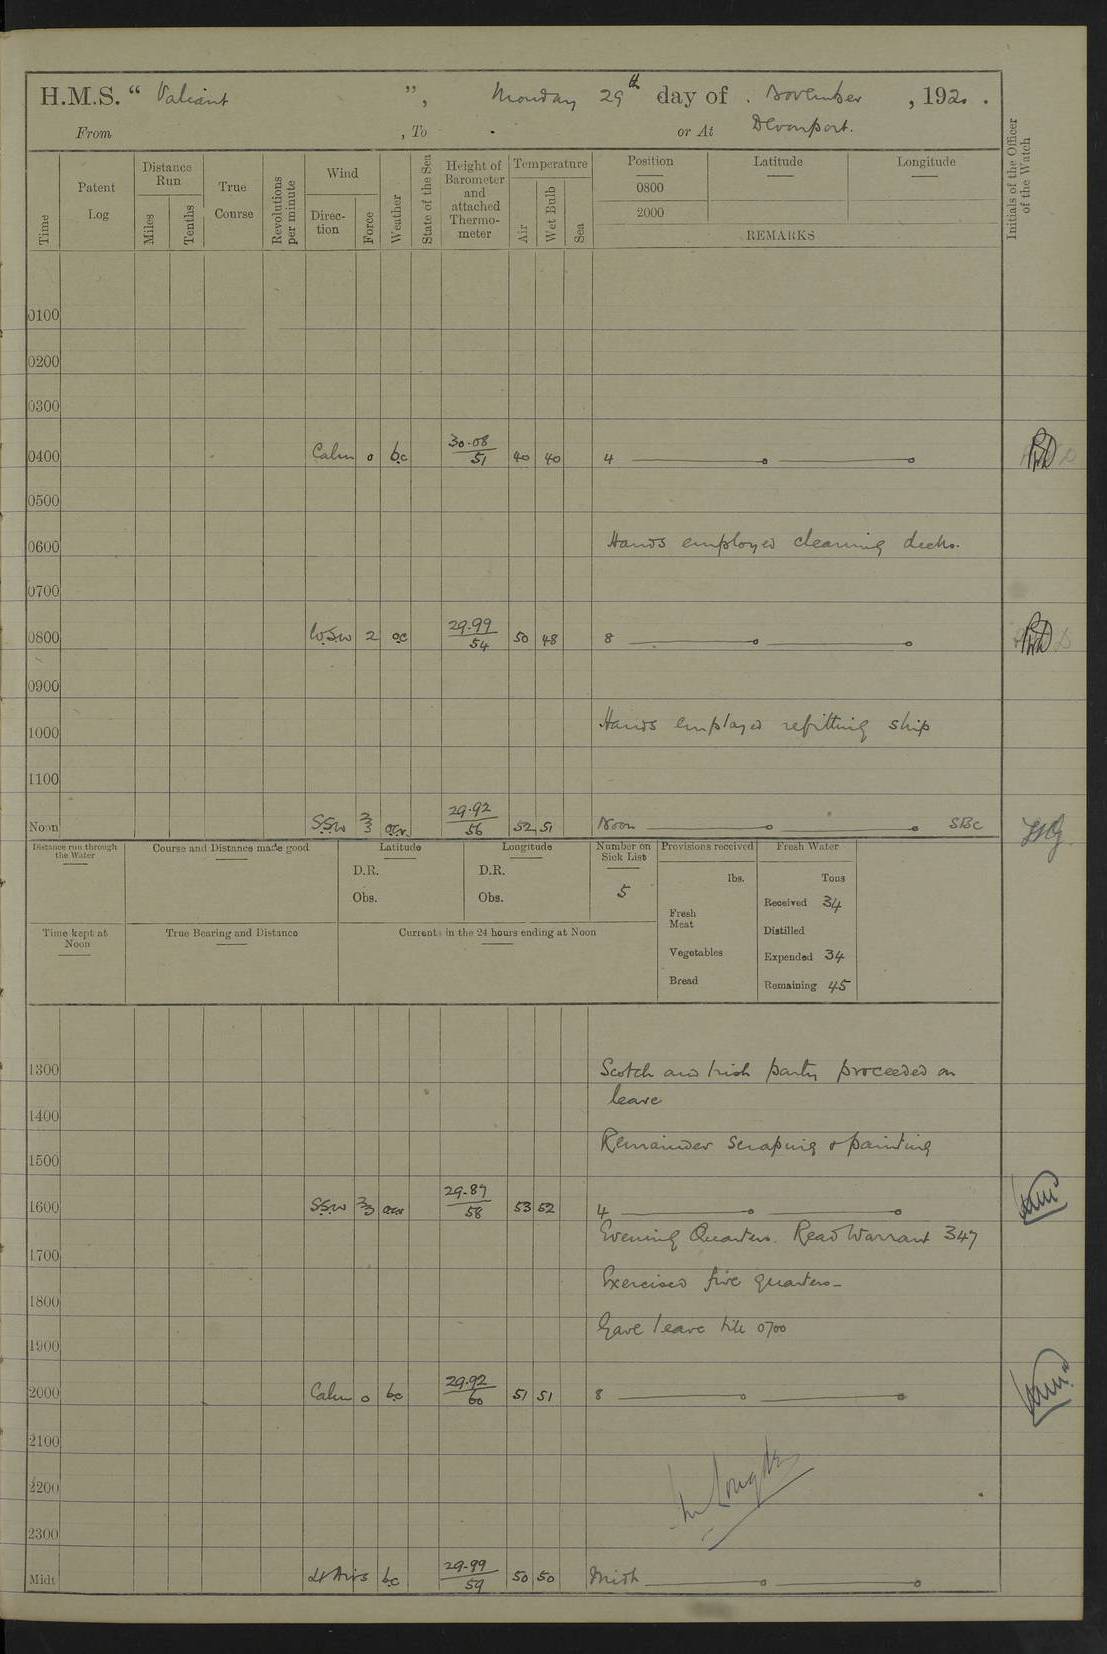 H.M.S. “ Valiant ”, Monday 29th day of November, 1920.
From , To or At Devonport.
Time
Patent Log
Distance Run
Miles
Tenths
True Course
Revolutions per minute
Wind
Direction
Force
Weather
State of the Sea
Height of Barometer and attached Thermometer
Temperature
Air
Wet Bulb
Sea
Position Latitude Longitude
0800
2000
REMARKS
Initials of the Officer of the Watch
0100
0200
0300
0400 Calm 0 bc 30.08/51 40 40 4
0500
0600 Hands employed cleaning decks.
0700
0800 WSW 2 oc 29.99/54 50 48 8
0900
1000 Hands employed refitting ship
1100
Noon SSW 2/3 29.92/56 52 51 Noon SBC
Distance run through the Water
Course and Distance made good
Latitude
D.R.
Obs.
Longitude
D.R.
Obs.
Number on Sick List
5
Provisions received
lbs.
Fresh Meat
Vegetables
Bread
Fresh Water
Tons
Received 34
Distilled
Expended 34
Remaining 45
Time kept at Noon
True Bearing and Distance
Currents in the 24 hours ending at Noon
1300 Scotch and Irish party proceeded on
leave
1400
Remainder scraping & painting
1500
1600 SSW 2/3 29.87/58 53 52 4
Evening Quarters. Read Warrant 347
1700
Exercised fire quarters
1800
Gave leave till 0700
1900
2000 Calm 0 bc 29.92/60 51 51 8
2100
2200
2300
Midt Lt Airs bc 29.99/59 50 50 Midt